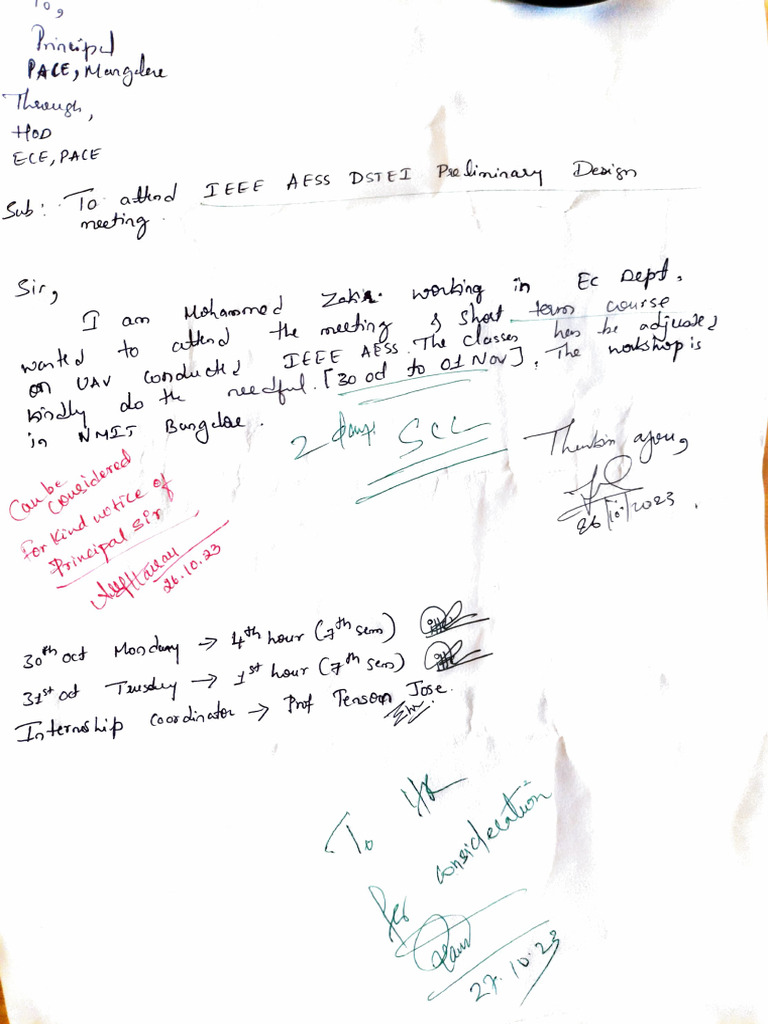 To,
Principal
PACE, Mangalore
Through,
HOD
ECE, PACE
Sub: To attend IEEE AESS DSTEI Preliminary Design
meeting.
Sir,
I am Mohammed Zakir working in EC Dept,
wanted to attend the meeting & short term course
on UAV conducted IEEE AESS. The classes has be adjusted
kindly do the needful. [30 oct to 01 Nov]. The workshop is
in NMIT Bangalore.
2 days SCL
Thanking you,
26/10/2023
Can be
considered
For kind notice of
Principal Sir
26.10.23
30th oct Monday → 4th hour (7th sem)
31st oct Tuesday → 1st hour (7th sem)
Internship coordinator → Prof Tenson Jose.
To HR
for consideration
27.10.23